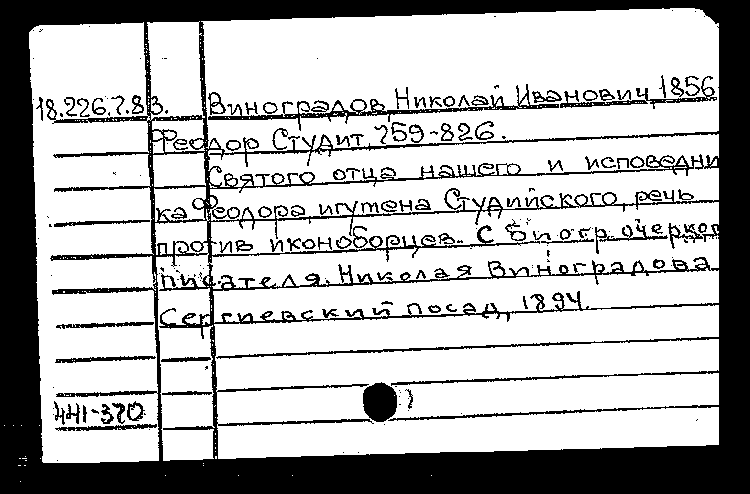 18.226.7.83. Виноградов, Николай Иванович, 1856
Феодор Студит, 759-826.
Святого отца нашего и исповедни
ка Феодора, игумена Студийского, речь
против иконоборцев. С биогр. очерком
писателя. Николая Виноградова.
Сергиевский посад, 1894.
441-370